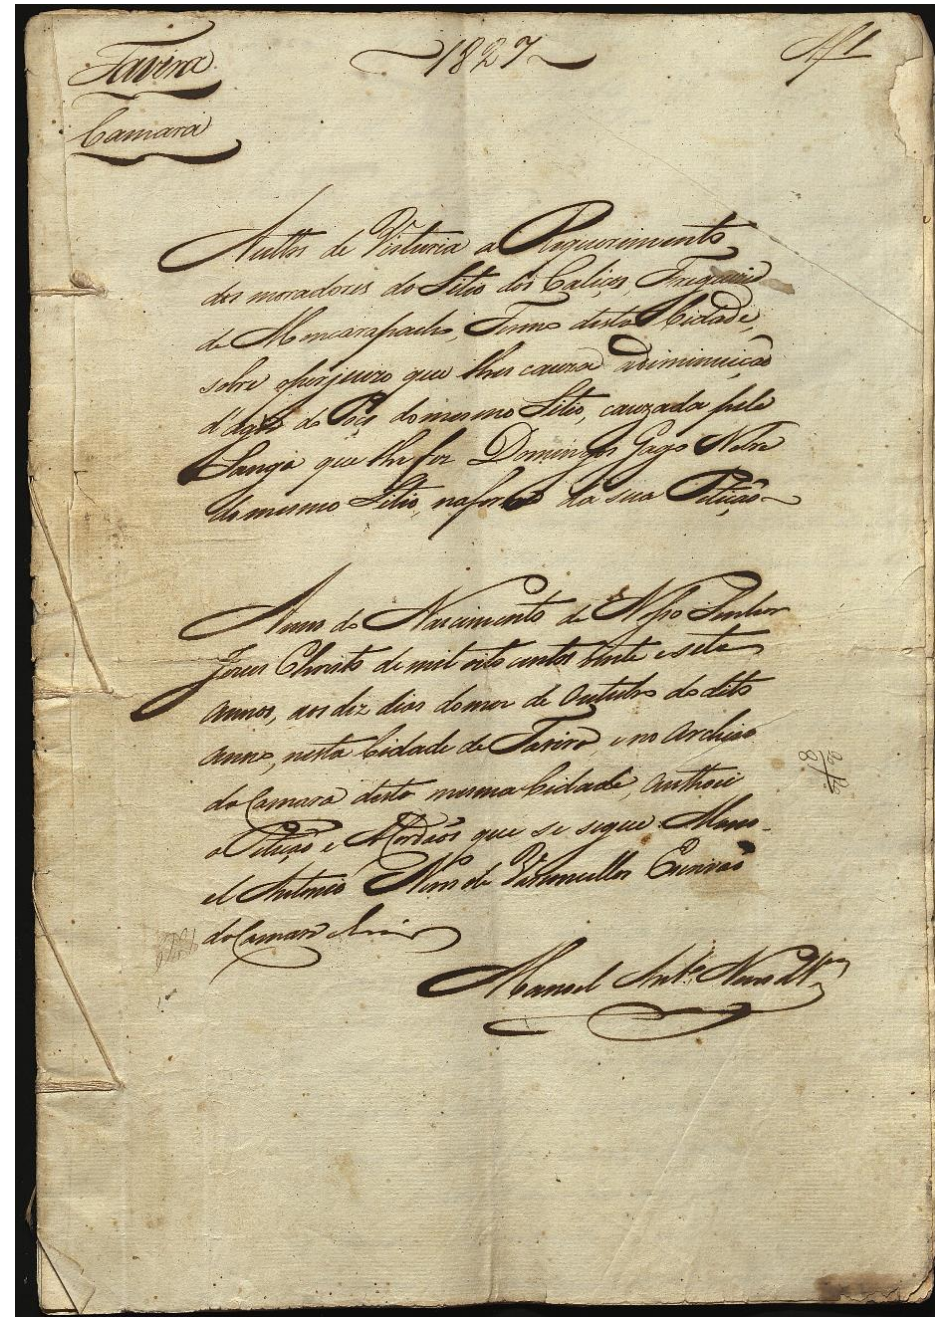 Tavira
1827
Camara
Auttos de Vistoria a Requerimento
dos moradores do Sitio dos Caliços, Freguezia
de Moncarapacho, Termo desta Cidade,
sobre o perjuizo que lhes cauza a diminuição
d'Agoa do Poço do mesmo Sitio, cauzada pela
Sanja que lhe fez Domingos Gago Nobre
do mesmo Sitio, na forma da sua Petição
Anno do Nascimento de Nosso Senhor
Jezus Christo de mil oito centos vinte e sete
annos, aos dez dias do mez de Outubro do dito
anno, nesta Cidade de Tavira, e no Archivo
da Camara desta mesma Cidade, authoei
a Petição e que se segue. Mano-
el Antonio Nunes de Vasconcellos Escrivão
da Camara
Manoel Ant.º Nunes